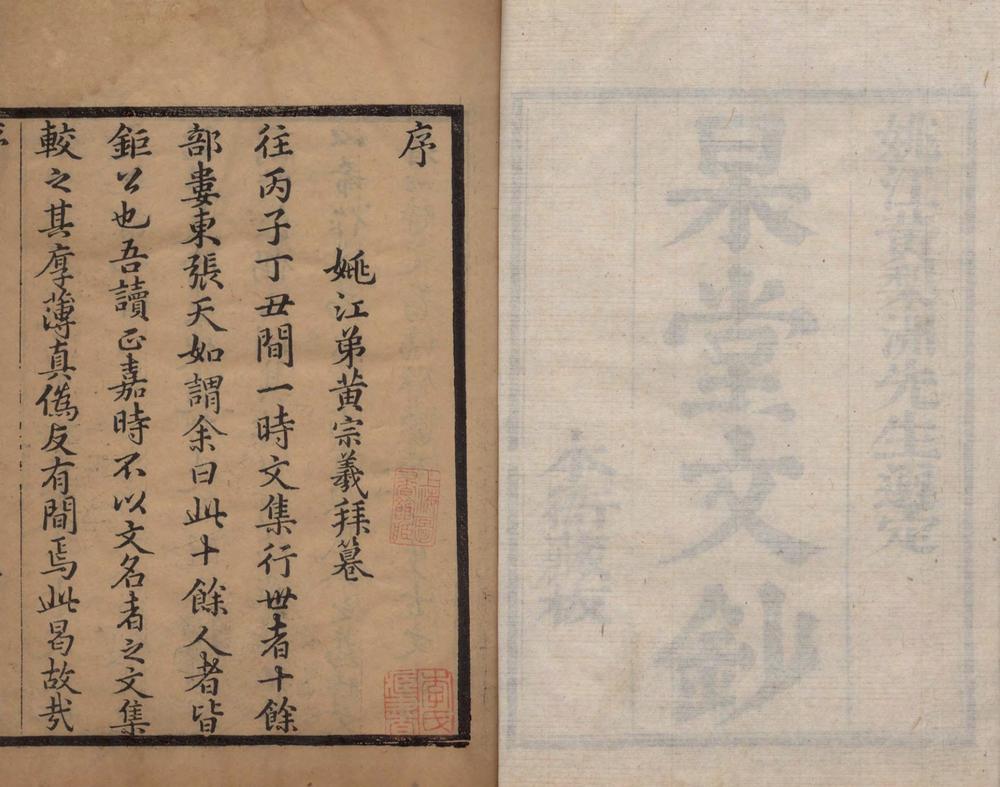 姚江黃梨洲先生選定
杲堂文鈔
本衙藏板
序
姚江弟黃宗羲拜纂
往丙子丁丑間一時文集行世者十餘
部婁東張天如謂余曰此十餘人者皆
鉅公也吾讀正嘉時不以文名者之文集
較之其厚薄真僞反有間焉此曷故哉
上海圖書館藏